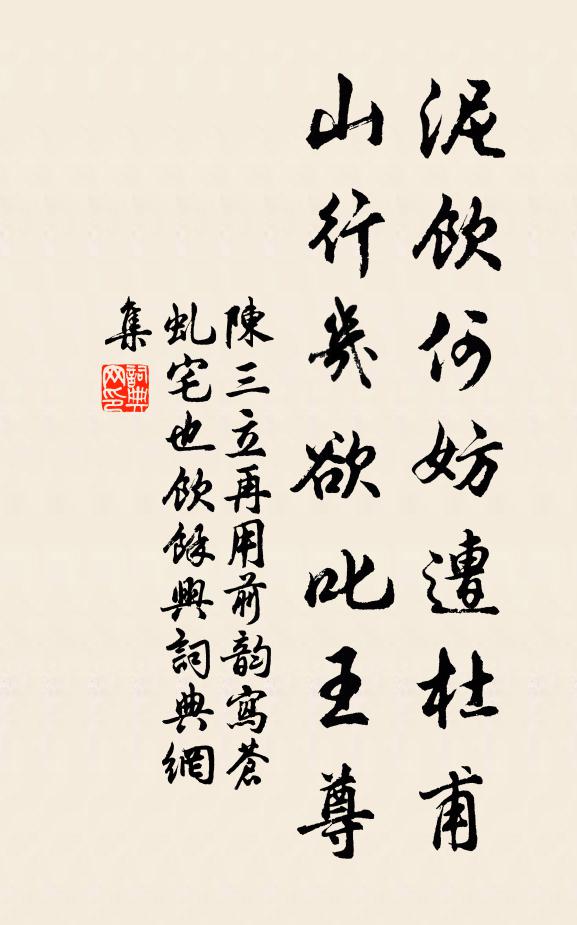 泥飲何妨遭杜甫
山行幾欲叱王尊
陳三立再用前韵寫蒼
虬宅也飲餘興詞典網
集
詞典
网印